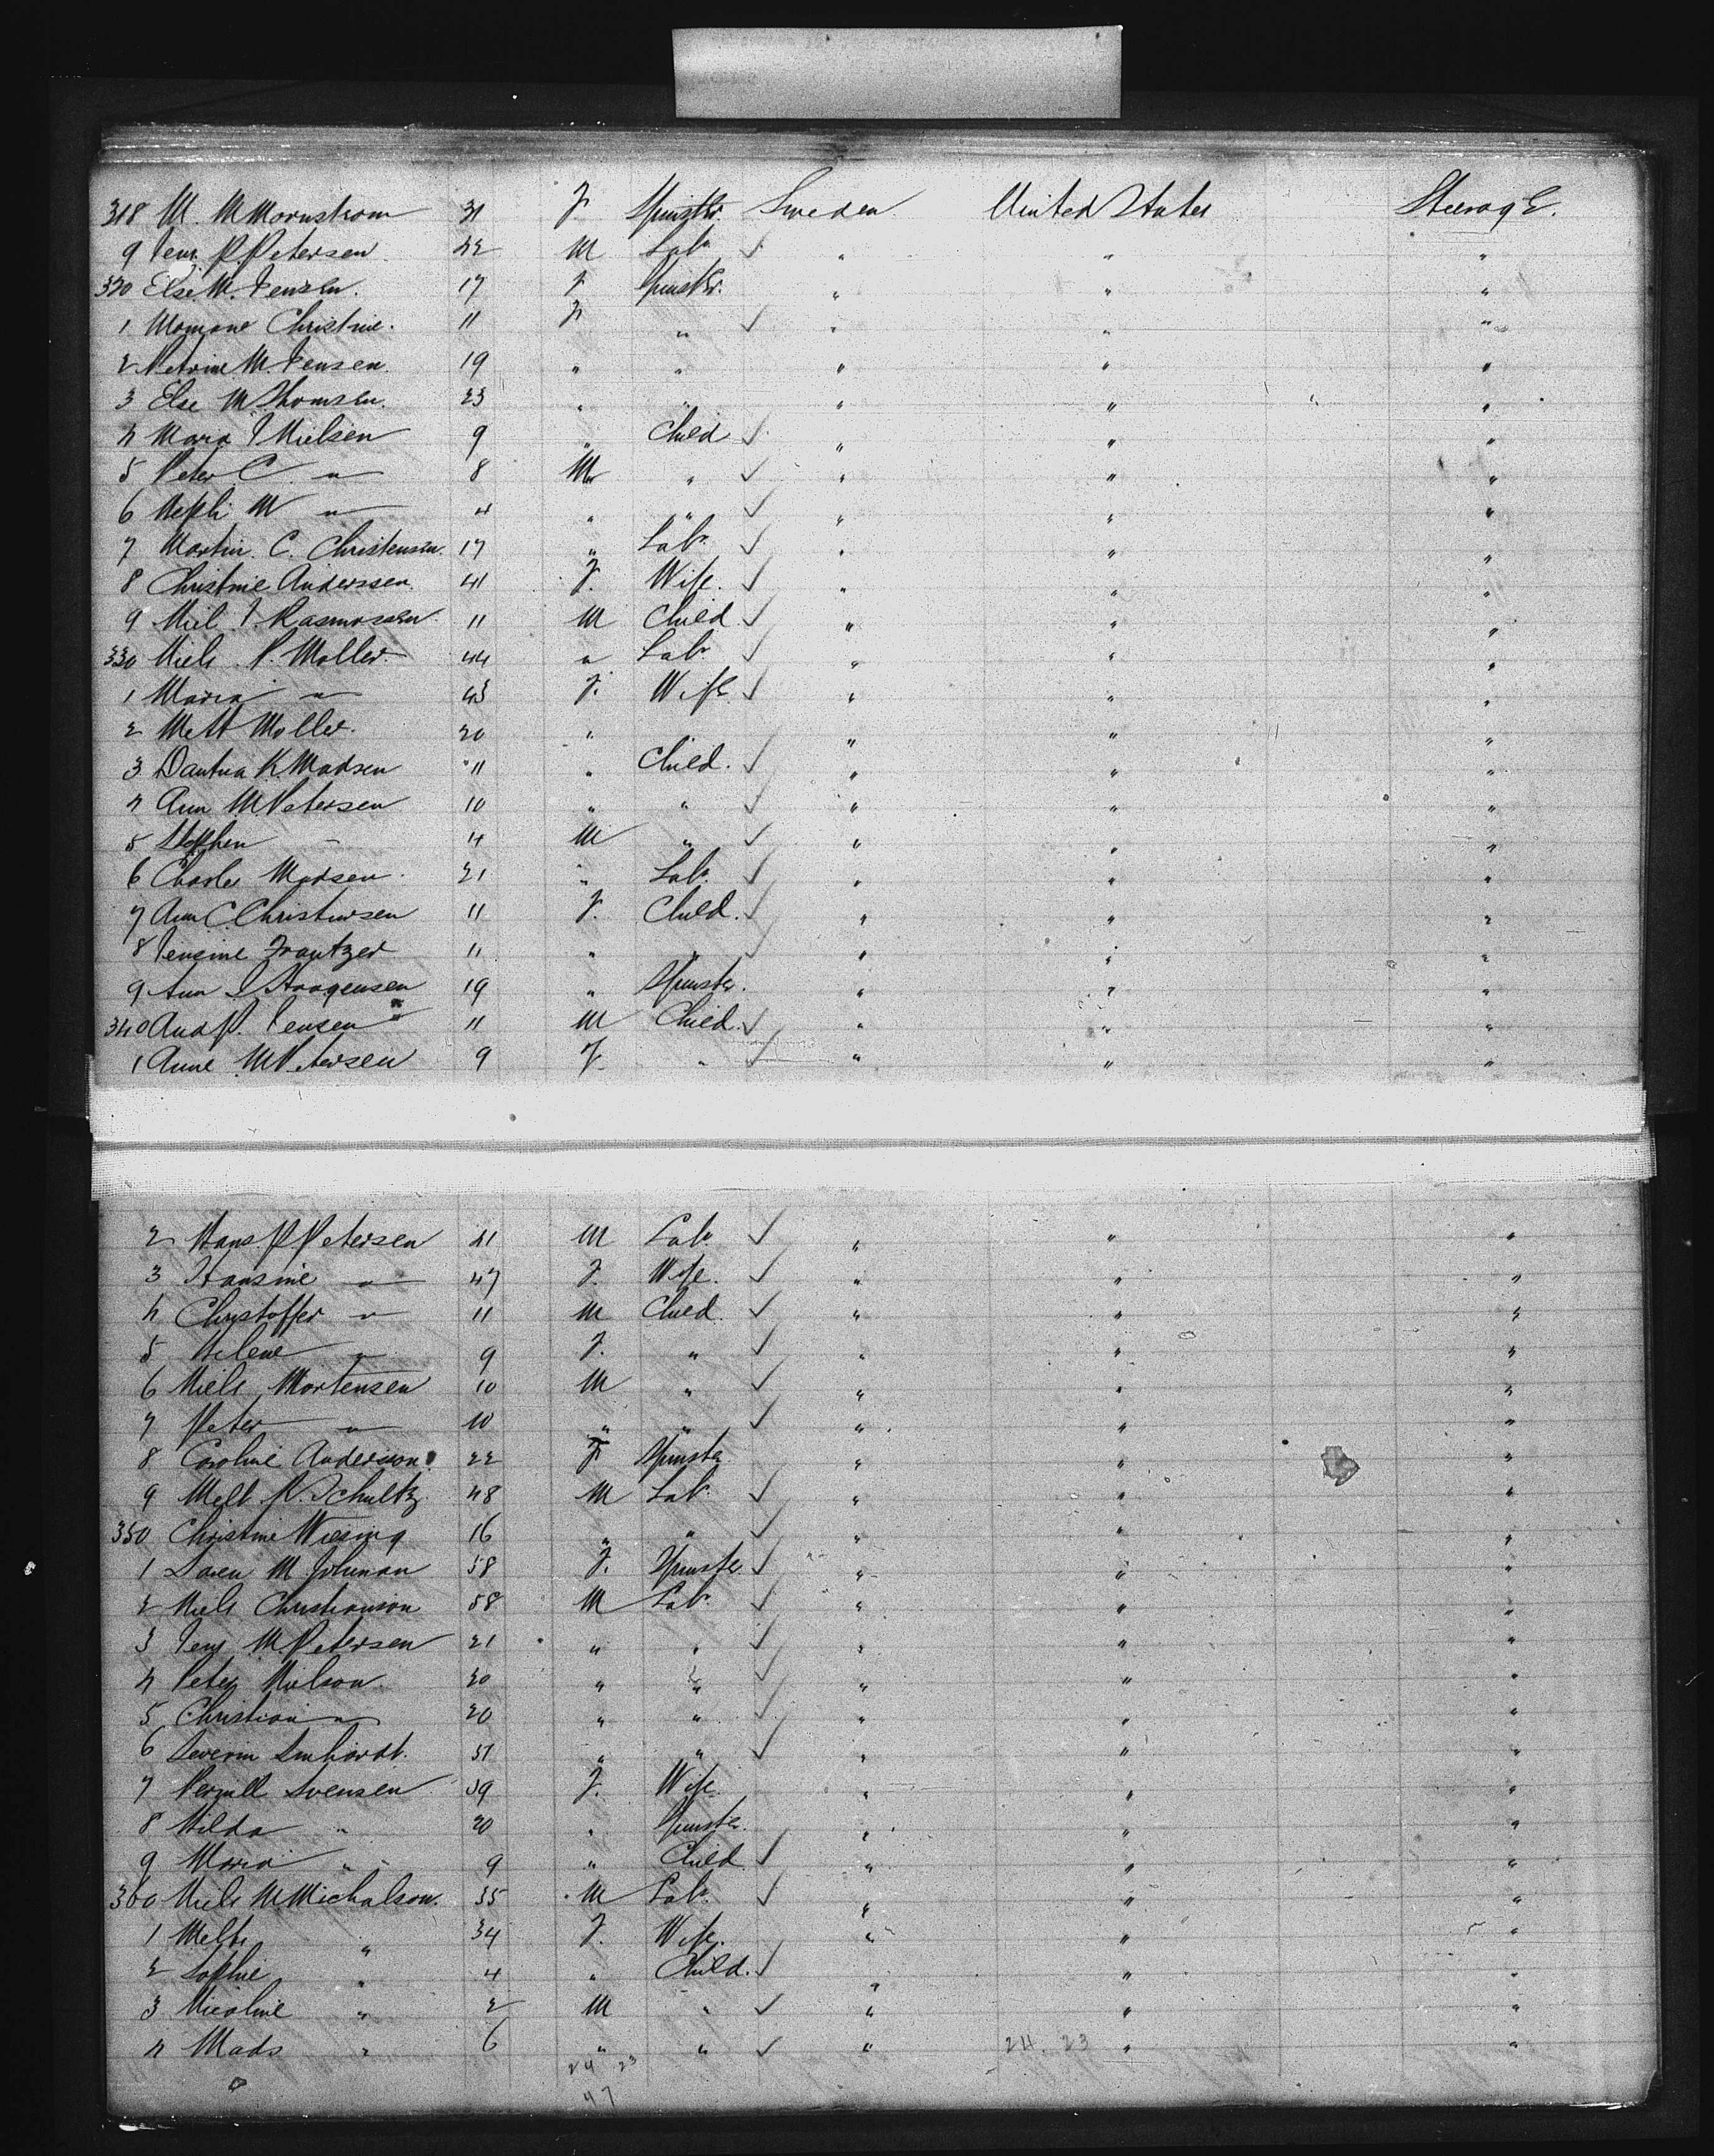 318 M. M Mornstrom 31 F. Spinster. Sweden. United States Steerage.
9 Jens. P. Petersen. 22 M Labr ✓ " " "
320 Else M. Jensen. 17 F. Spinster. " " "
1 Christine. 11 F. " ✓ " " "
2 Petrine M. Jensen. 19 " " " " "
3 Else M. Thomsen. 23 " " " " "
4 Maria J Nielsen 9 " Child ✓ " " "
5 Peter C. " 8 M " ✓ " " "
6 Nephi W " 4 " " ✓ " " "
7 Martin. C. Christensen. 17 " Labr ✓ " " "
8 Christine Anderssen. 41 F. Wife. ✓ " " "
9 Niel J. Rasmussen. 11 M Child ✓ " " "
330 Niels. P. Moller. 44 " Labr ✓ " " "
1 Maria " 43 F. Wife ✓ " " "
2 Mett Moller. 20 " " " "
3 K. Madsen 11 " Child. ✓ " " "
4 Ann M Petersen 10 " " ✓ " " "
5 Stephen " 4 M " ✓ " " "
6 Charles Madsen. 21 " Labr. ✓ " " "
7 Ann C. Christensen 11 F. Child. ✓ " " "
8 Jensine Frantzer 11 " ✓ " " "
9 Ann S 19 " Spinster. " " "
340 And P. Jensen 11 M Child. ✓ " " "
1 Anne M Petersen 9 F. " ✓ " " "
2 Hans. P. Petersen 41 M Labr ✓ " " "
3 Hansine " 47 F. Wife. ✓ " " "
4 Christoffer " 11 M Child. ✓ " " "
5 Helene " 9 F. " ✓ " " "
6 Niels Mortensen 10 M " ✓ " " "
7 Peter " 10 " " ✓ " " "
8 Caroline Anderson. 22 F Spinster. " " "
9 P. Schultz 48 M Labr. ✓ " " "
350 Christine Wiesing 16 " " ✓ " " "
1 M. 58 F. Spinster ✓ " " "
2 Niels Christianson 58 M Labr. ✓ " " "
3 Jens M. Petersen 21 " " ✓ " " "
4 Peter Nielson. 20 " " ✓ " " "
5 Christian " 20 " " ✓ " " "
6 Severin 51 " " ✓ " " "
7 Pernill Svensen 39 F. Wife " " "
8 Hilda " 20 " Spinster. " " "
9 Maria " 9 " Child ✓ " " "
360 Niels M Michalson. 35 M Labr. ✓ " " "
1 " 34 F. Wife. " " "
2 Sophie " 4 " Child. ✓ " " "
3 Nicoline " 2 M " ✓ " " "
4 Mads " 6 " " ✓ " 24. 23 " "
24 23
47